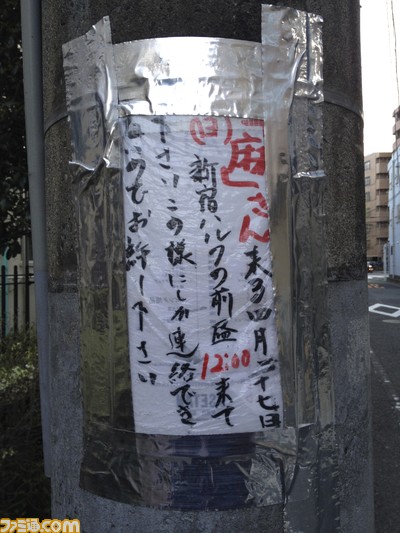 庵さん来る四月二十七日
(日)新宿ハルクの前昼12:00来て
下さいこの様にしか連絡でき
ないのでお許し下さい
ファミ通.com